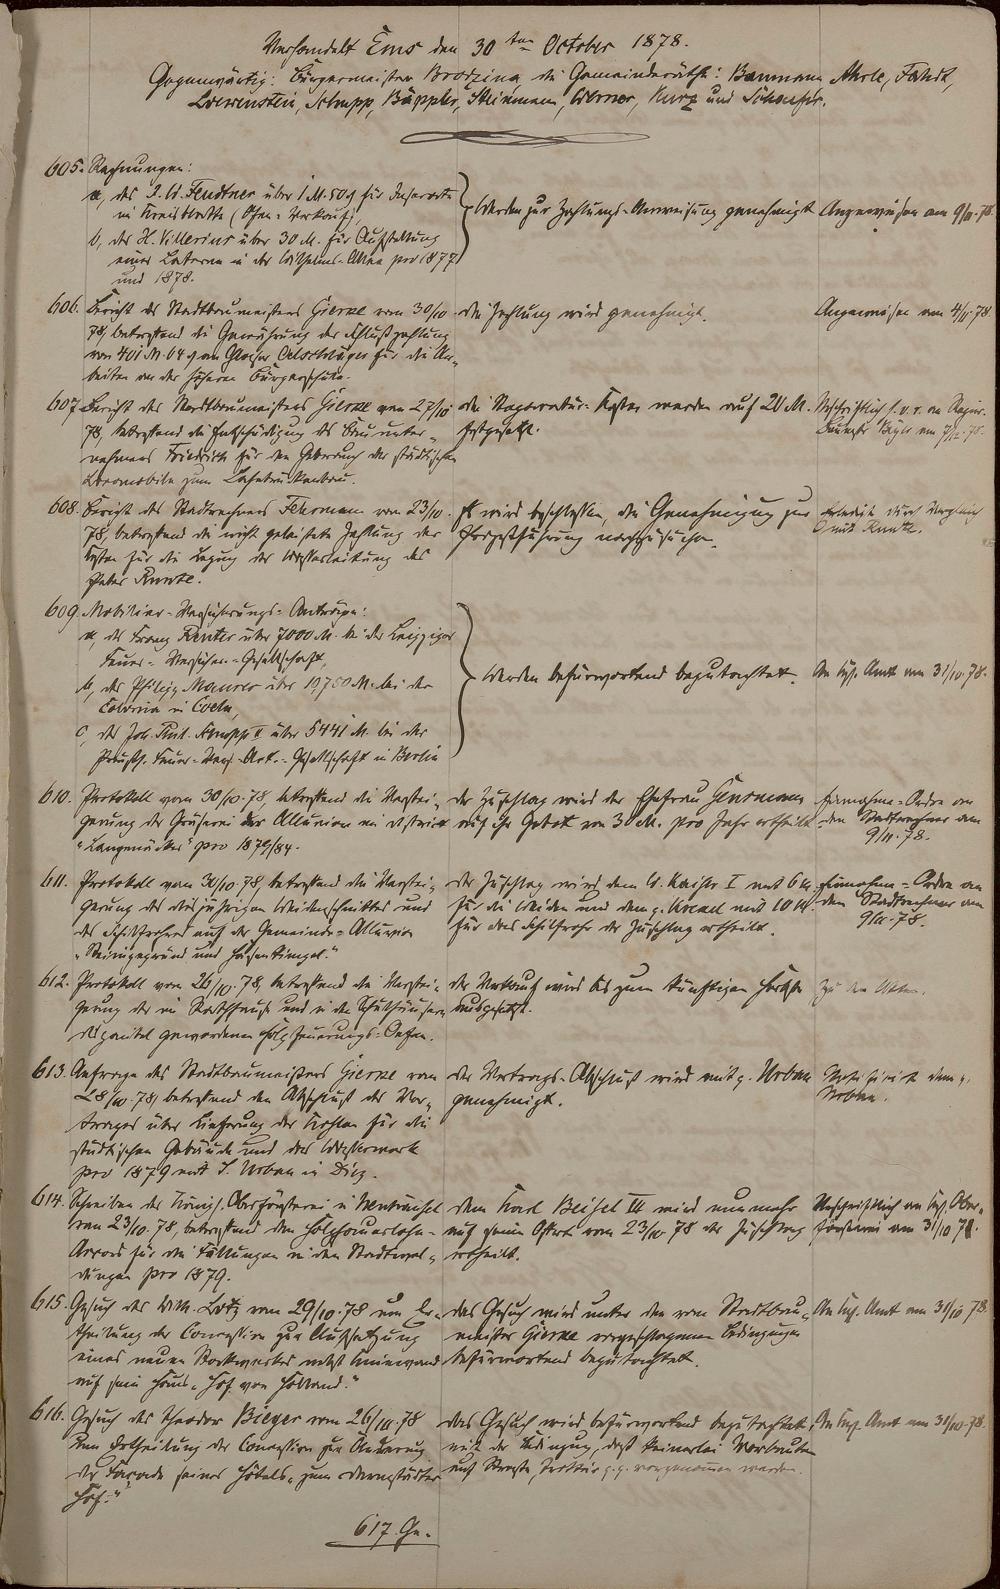 Verhandelt Ems den 30ten October 1878.
Gegenwärtig: Bürgermeister Brodzina, die Gemeinderäthe: Baumann, Ahrle, Fahdt,
Loewenstein, Schupp, Bäppler, Steinmann, Werner, Kurz und
605. Rechnungen:
a, des J. W. Feudtner über 1 M. 50 ₰ für Inserate
im Kreisblatte (Ofen-Verkauf)
b, des H. Villerius über 30 M. für Aufstellung
einer Laterne in der Wilhelms-Allee pro 1877
und 1878.
Werden zur Zahlungs-Anweisung genehmigt
Angewiesen am 9/11.78.
606. Bericht des Stadtbaumeisters Gierke vom 30/10
78, betreffend die Gewährung der Schlußzahlung
von 401 M. 64 ₰ an Glaser Oelschläger für die Ar-
beiten an der höheren Bürgerschule.
die Zahlung wird genehmigt.
Angewiesen am 4/11.78
607. Bericht des Stadtbaumeisters Gierke vom 27/10
78, betreffend die Entschädigung des Bauunter-
nehmers Friedrich für den Gebrauch der städtischen
Locomobile zum
die Reparatur-Kosten werden auf 20 M.
festgesetzt.
Urschriftlich s. v. r. an
am 7/12.78.
608. Bericht des Stadtrechners Fehrmann vom 23/10.
78, betreffend die nicht geleistete Zahlung der
Kosten für die Legung der Wasserleitung des
Peter Kunte.
Es wird beschlossen, die Genehmigung zur
Prozeßführung nachzusuchen.
Erledigt durch Vergleich
mit Kunte.
609. Mobiliar-Versicherungs-Anträge:
a, des Franz Reuter über 7000 M. bei der Leipziger
Feuer-Versicher.-Gesellschaft,
b, des Philipp Maurer über 19,750 M. bei der
Colonia in Coeln,
c, des Joh. Phil. Knopp II über 5441 M. bei der
Preuß. Feuer-Vers.-Act.-Gesellschaft in Berlin
Werden befürwortend begutachtet.
An Kgl. Amt am 31/10.78.
610. Protokoll vom 30/10.78, betreffend die Verstei-
gerung der Gräserei der Alluvion im District
"Langenäcker" pro 1879/84.
der Zuschlag wird der Ehefrau Gensmann
auf ihr Gebot von 3 M. pro Jahr ertheilt
Einnahme-Ordre an
den Stadtrechner am
9/11.78.
611. Protokoll vom 30/10.78, betreffend die Verstei-
gerung des diesjährigen Weidenschnittes und
des Schilfrohres auf der Gemeinde-Alluvion
der Zuschlag wird dem W. Kaiser I mit 6 M.
für die Weiden und dem g. mit 10 M.
für das Schilfrohr der Zuschlag ertheilt.
Einnahme-Ordre an
dem Stadtrechner am
9/11.78.
612. Protokoll vom 26/10.78, betreffend die Verstei-
gerung der im Rathhause und in den Schulhäusern
disponibel gewordenen Holzfeuerungs-Oefen.
der Verkauf wird bis zum künftigen Herbste
ausgesetzt.
Zu den Akten.
613. Anfrage des Stadtbaumeisters Gierke vom
28/10.78, betreffend den Abschluß des Ver-
trages über Lieferung der Kohlen für die
städtischen Gebäude und das Wasserwerk
pro 1879 mit J. Urban in Diez.
der Vertrags-Abschluß wird mit g. Urban
genehmigt.
Notificirt dem g.
Urban.
614. Schreiben der Königl. Oberförsterei in Welschneudorf
vom 23/10.78, betreffend den Holzhauerlohn-
Accord für die Fällungen in den Stadtwal-
dungen pro 1879.
dem Karl Beisel III wird nunmehr
auf seine Offerte vom 23/10.78 der Zuschlag
ertheilt.
Urschriftlich an Kgl. Ober-
försterei am 31/10 78.
615. Gesuch des Wilh. Lotz vom 29/10.78 um Er-
theilung der Concession zur Aufsetzung
eines neuen Stockwerkes nebst Kniewand
auf sein Haus "Hof von Holland."
das Gesuch wird unter den vom Stadtbau-
meister Gierke vorgeschlagenen Bedingungen
befürwortend begutachtet.
An Kgl. Amt am 31/10 78.
616. Gesuch des Theodor Bieger vom 26/10.78
um Ertheilung der Concession zur Änderung
der Facade seines Hôtels "zum Darmstädter
Hof."
das Gesuch wird befürwortend begutachtet,
mit der Bedingung, daß keinerlei Vorbauten
auf vorgenommen werden.
An Kgl. Amt am 31/10.78.
617. Ge-